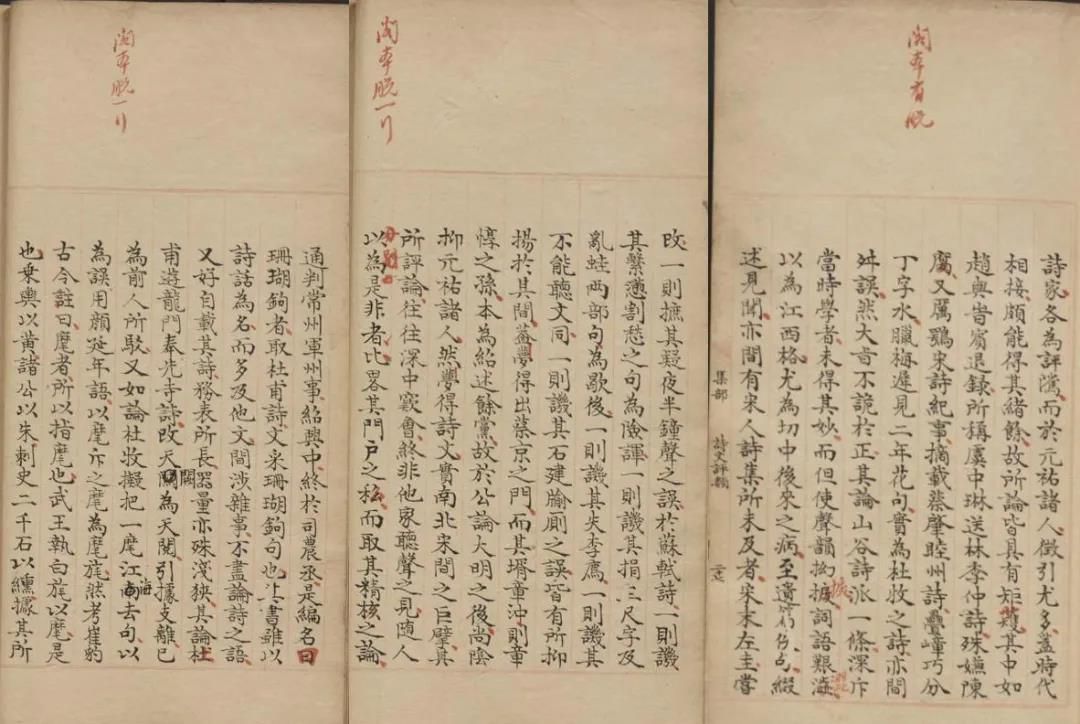 閣本脫一行
通判常州軍州事紹興中終於司農丞是編名曰
珊瑚鉤者取杜甫詩文采珊瑚鉤句也其書雖以
詩話為名而多及他文間涉雜事不盡論詩之語
又好自載其詩務表所長器量亦殊淺狹其論杜
甫遊龍門奉先寺詩改天闕為天閱引據支離已
為前人所駁又如論杜牧擬把一麾江海去句以
為誤用顏延年語以麾斥之麾為麾旄然考崔豹
古今註曰麾者所以指麾也武王執白旄以麾是
也乗輿以黃諸公以朱刺史二千石以纁據其所
閣本脫一行
改一則摭其疑夜半鐘聲之誤於蘇軾詩一則譏
其繫懣割愁之句為險諢一則譏其捐三尺字及
亂蛙兩部句為歇後一則譏其失李廌一則譏其
不能聽文同一則譏其石建牏廁之誤皆有所抑
揚於其間葢夢得出蔡京之門而其壻章沖則章
惇之孫本為紹述餘黨故於公論大明之後尚陰
抑元祐諸人然夢得詩文實南北宋間之巨擘其
所評論往往深中窾會終非他家聽聲之見隨人
以為是非者比畧其門户之私而取其精核之論
閣本有脫
詩家各為評騭而於元祐諸人徵引尤多葢時代
相接頗能得其緒餘故所論皆具有矩矱其中如
趙與旹賓退録所稱虞中琳送林季仲詩殊嫌陳
腐又厲鶚宋詩紀事摘載蔡肇睦州詩疊嶂巧分
丁字水臘梅遲見二年花句實為杜牧之詩亦間
舛誤然大旨不詭於正其論山谷詩派一條深斥
當時學者未得其妙而但使聲韻拗捩詞語艱澁
以為江西格尤為切中後來之病至遺篇佚句綴
述見聞亦間有宋人詩集所未及者宋末左圭嘗
集部 詩文評類